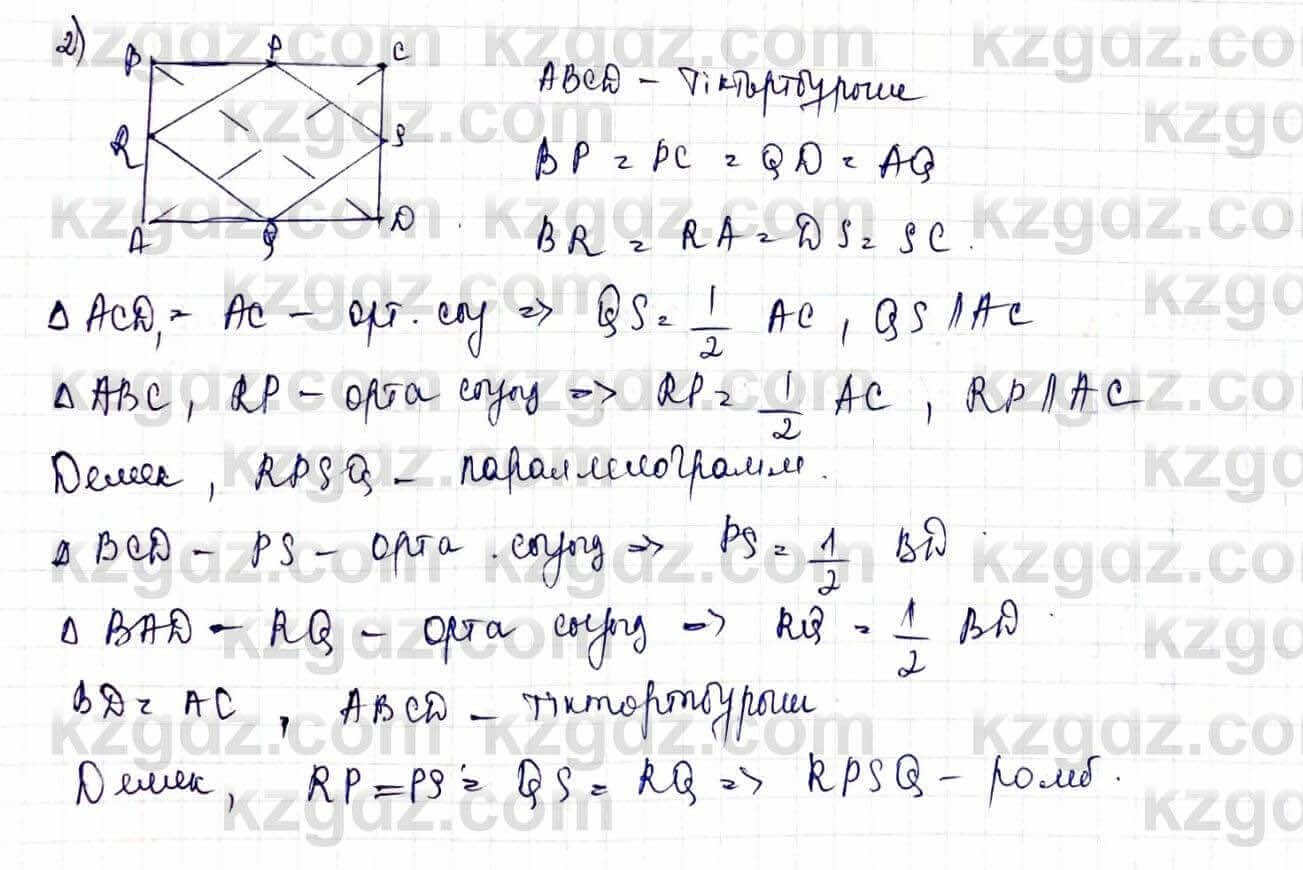 2)
B P C
R S
A Q D
ABCD – Тіктөртбұрыш
BP = PC = QD = AQ
BR = RA = DS = SC.
Δ ACD, = AC – орт. сыз => QS = 1/2 AC, QS ∥ AC
Δ ABC, RP – орта сызық => RP = 1/2 AC, RP ∥ AC
Демек, RPSQ – параллелограмм.
Δ BCD – PS – орта сызық => PS = 1/2 BD.
Δ BAD – RQ – орта сызық –> RQ = 1/2 BD.
BD = AC, ABCD – тіктөртбұрыш
Демек, RP = PS = QS = RQ => RPSQ – ромб.
kzgdz.com